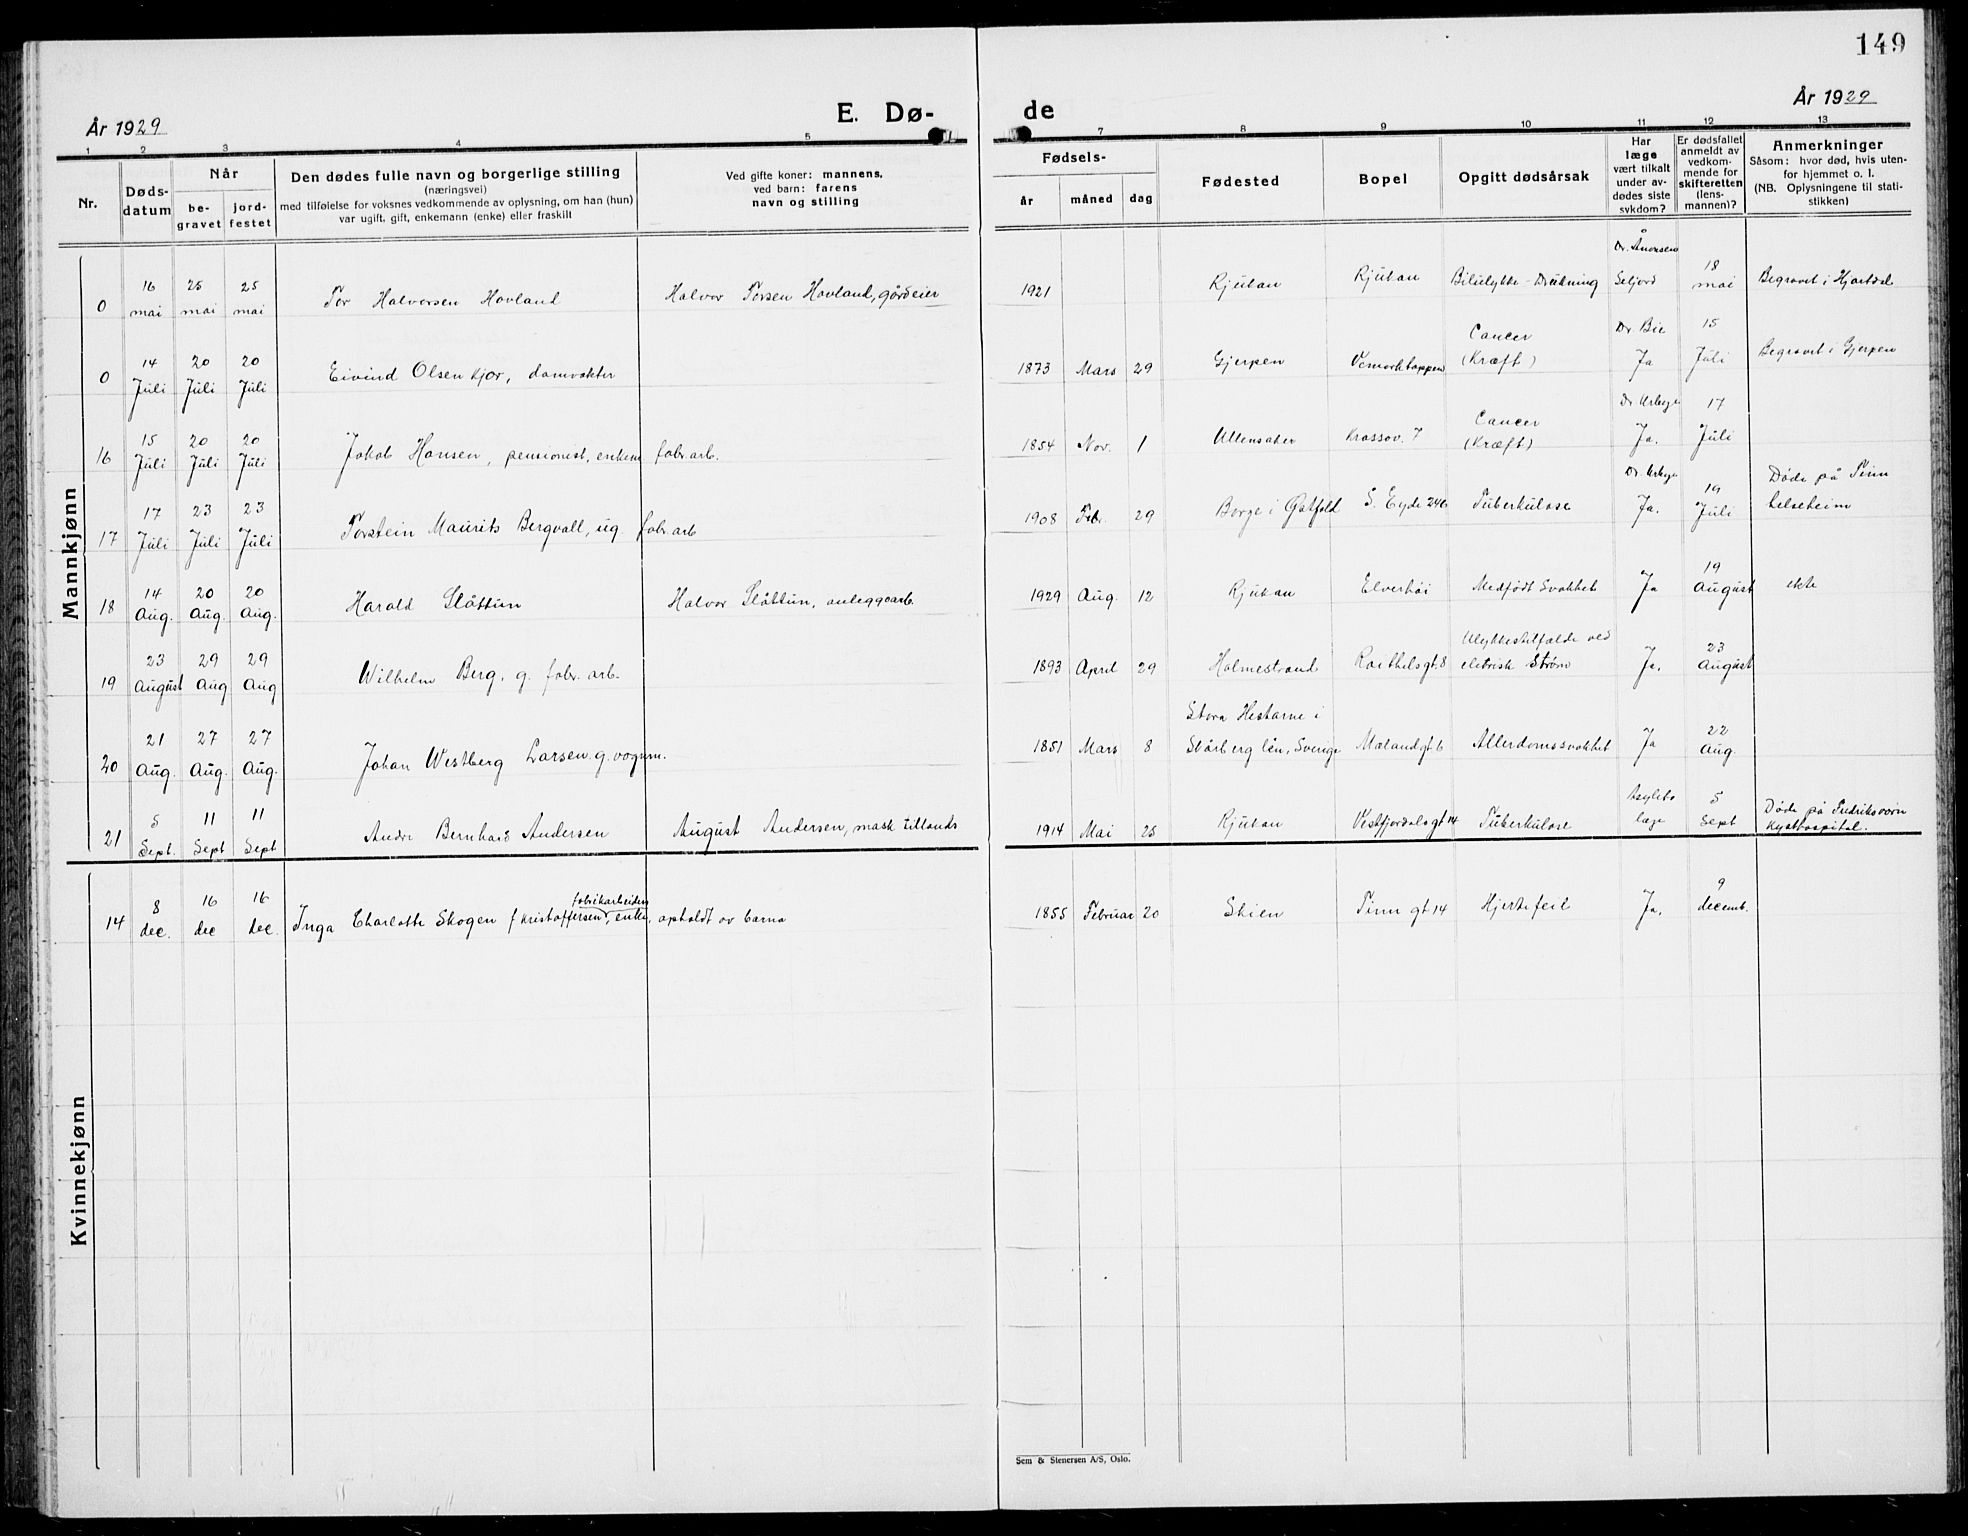 149
År 1929
E. Dø-
de
År 1929
1 2 3 4 5
7 8 9 10 11 12 13
Nr.
Døds-
datum
Når
be-
gravet
jord-
festet
Den dødes fulle navn og borgerlige stilling
(næringsvei)
med tilføielse for voksnes vedkommende av oplysning, om han (hun)
var ugift, gift, enkemann (enke) eller fraskilt
Ved gifte koner: mannens,
ved barn: farens
navn og stilling
Fødsels-
år måned dag
Fødested
Bopel
Opgitt dødsårsak
Har
læge
vært tilkalt
under av-
dødes siste
sykdom?
Er dødsfallet
anmeldt av
vedkom-
mende for
skifteretten
(lens-
mannen)?
Anmerkninger
Såsom: hvor død, hvis uten-
for hjemmet o. l.
(NB. Oplysningene til stati-
stikken)
Mannkjønn
0 16 mai 25 mai 25 mai Tor Halvorsen Hovland Halvor Torsen Hovland, gårdeier 1921 Rjukan Rjukan Bilulykke - Drukning Seljord 18 mai Begravet i Hjartdal
0 14 Juli 20 Juli 20 Juli Eivind Olsen Kjor, damvokter 1873 Mars 29 Gjerpen Vemorktoppen Cancer (Kræft) Dr. Bie Ja 15 Juli Begravet i Gjerpen
16 15 Juli 20 Juli 20 Juli Jakob Hansen, pensionist, enkem fabr.arb. 1854 Nov. 1 Ullensaker Krossov. 7 Cancer (Kræft) Ja. 17 Juli
17 17 Juli 23 Juli 23 Juli Torstein Maurits Bergvall, ug fabr.arb 1908 Febr. 29 Borge i Østfold S. Eyde 246 Tuberkulose Ja. 19 Juli Døde på Tinn helseheim
18 14 Aug. 20 Aug. 20 Aug. Harald Slåttun Halvor Slåttun, anleggsarb. 1929 Aug. 12 Rjukan Elverhöi Medfødt Svakhet Ja 19 August ekte
19 23 August 29 Aug 29 Aug Wilhelm Berg, g. fabr. arb. 1893 April 29 Holmestrand gt. 8 Ulykkestilfælde ved eletrisk Strøm Ja. 23 August
20 21 Aug. 27 Aug. 27 Aug. Johan Westberg Larsen g. vognm. 1851 Mars 8 Stora Hestarne i Skårberg lên, Sverige Mælandgt 6 Allerdomssvakhet Ja 22 Aug.
21 5 Sept. 11 Sept 11 Sept Andre Bernhard Andersen August Andersen, mask 1914 Mai 25 Rjukan Vestfjordalsgt 14 Tuberkulose læge 5 Sept Døde på Fredriksværn Kysthospital.
Kvinnekjønn
14 8 dec. 16 dec 16 dec. Inga Charlotte Skogen f Kristoffersen, fabrikarbeider enke, opholdt av barna 1855 Februar 20 Skien Tinn gt 14 Hjertefeil Ja. 9 decemb.
Sem & Stenersen A/S, Oslo.